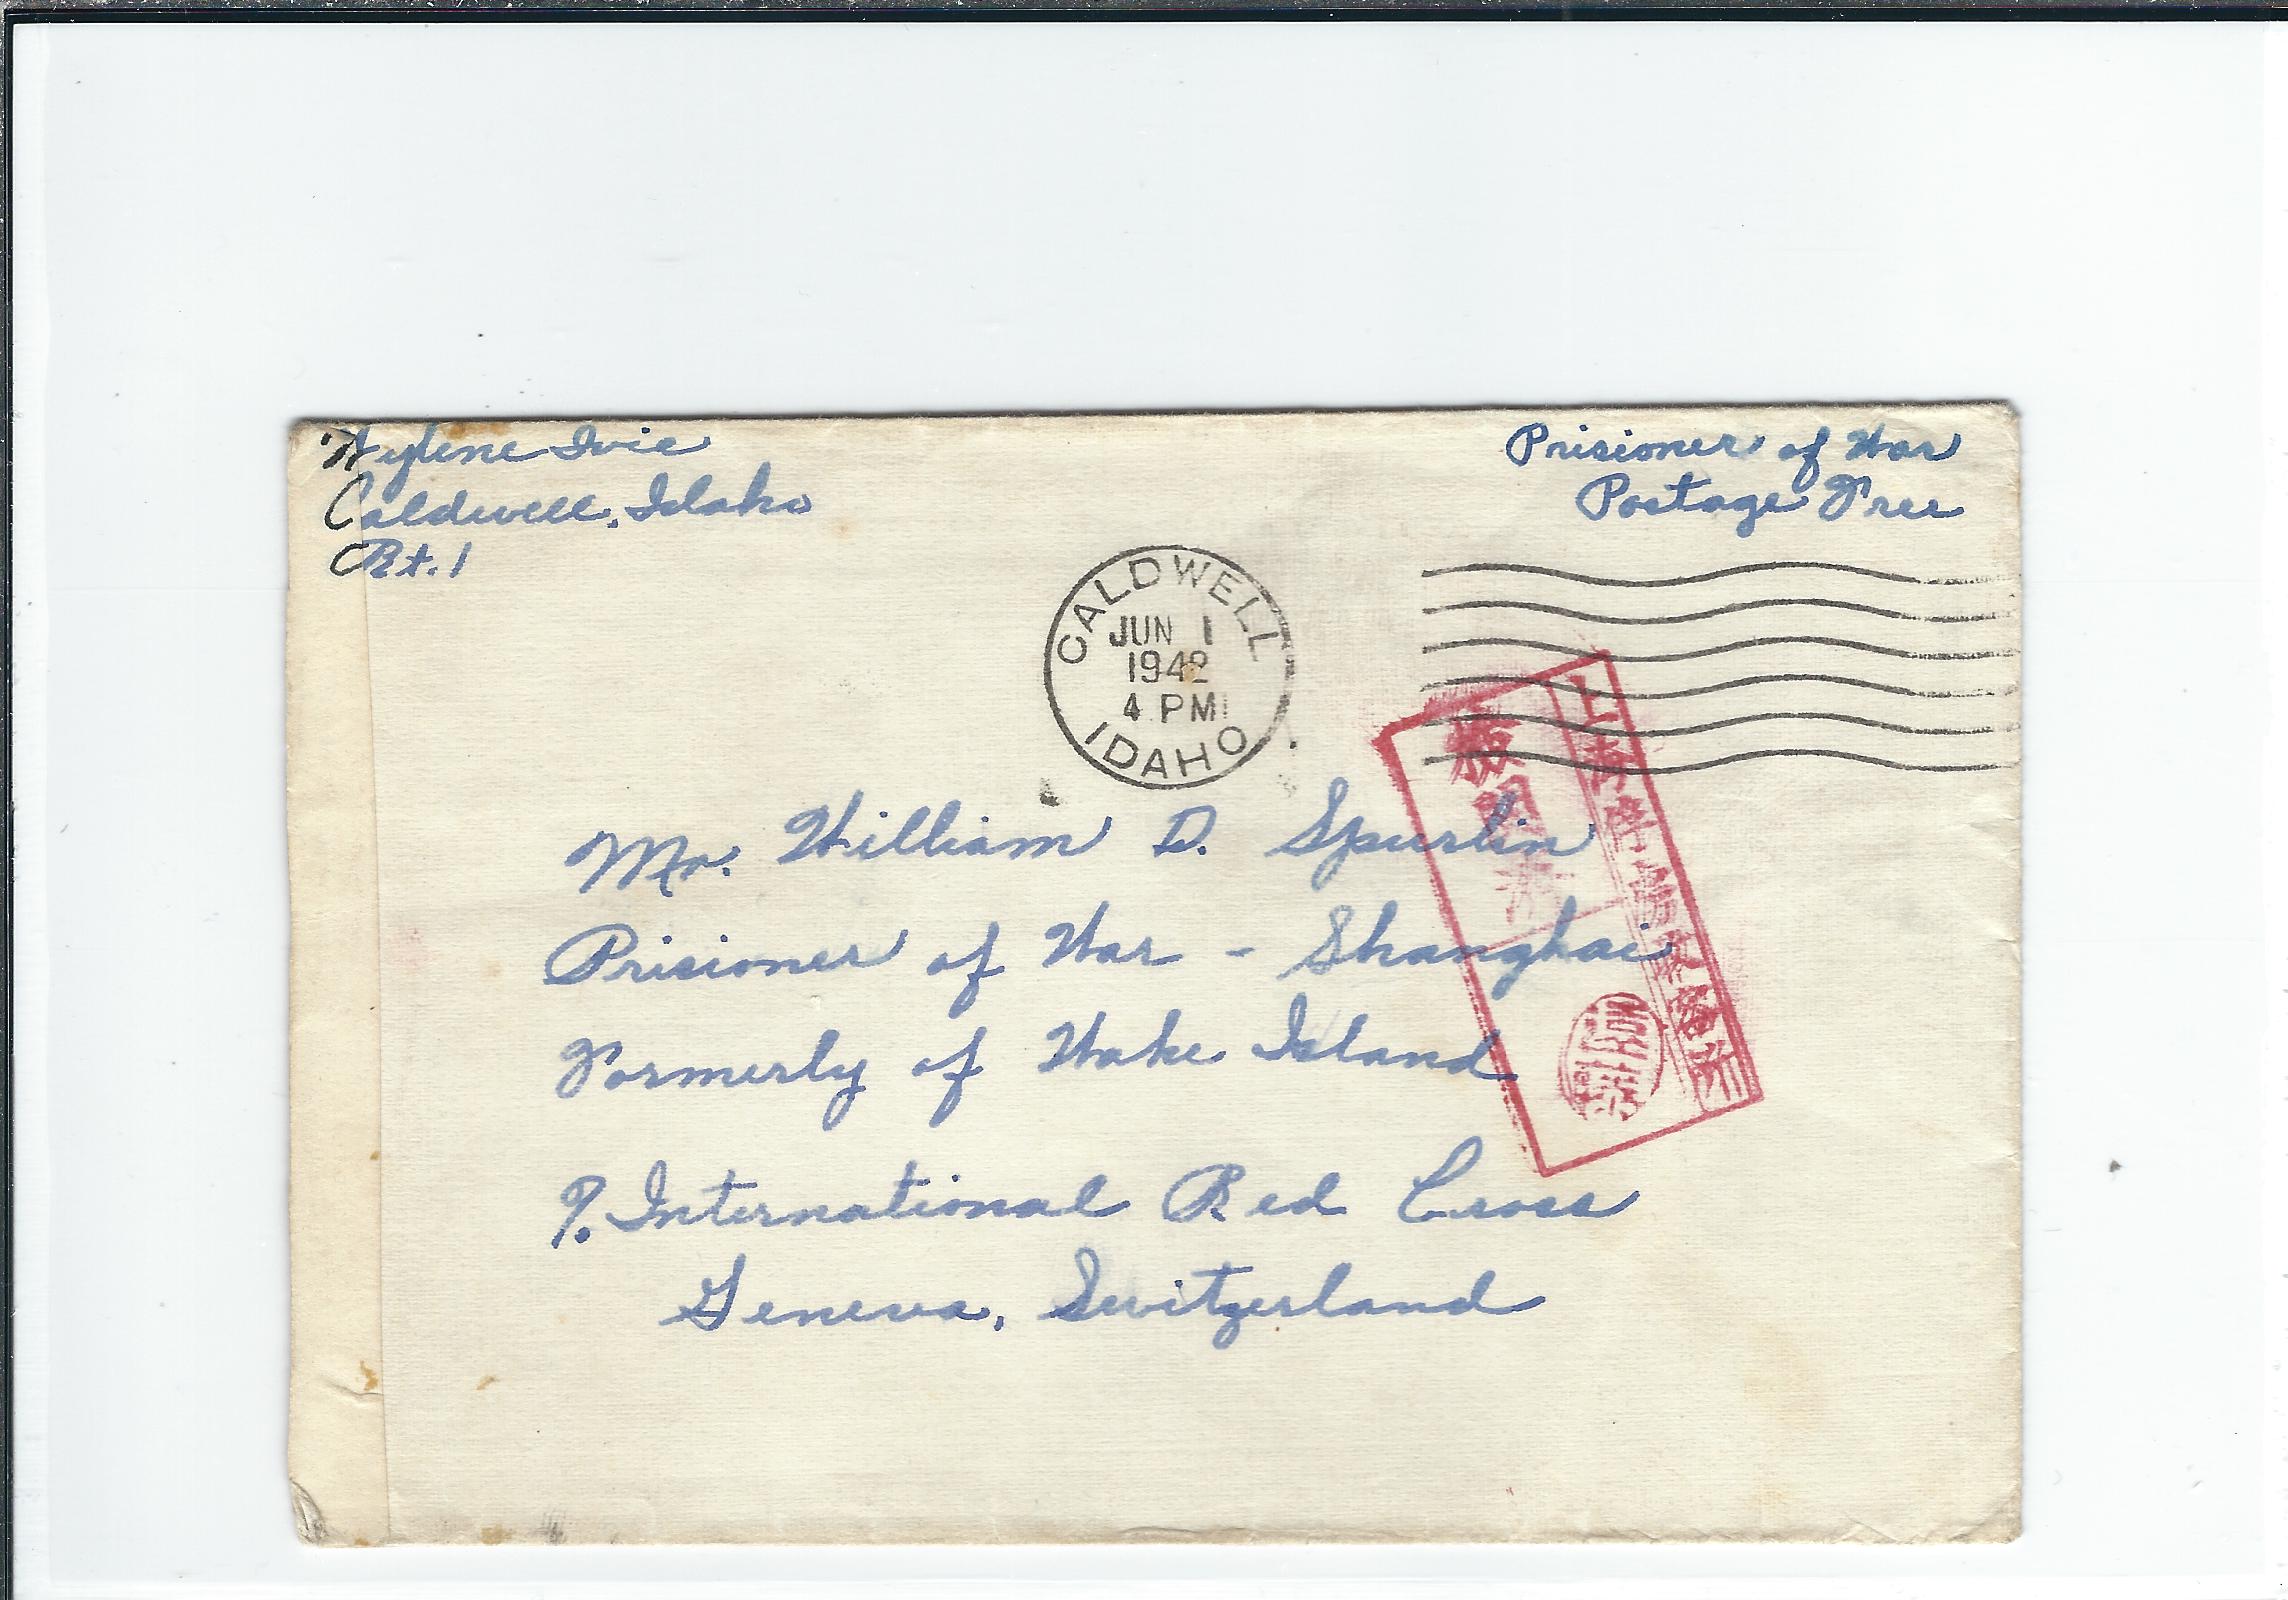 Wylene Ivie
Caldwell, Idaho
Rt. 1
Prisioner of War
Postage Free
CALDWELL
JUN 1
1942
4 PM
IDAHO
Mr. William D. Spurlin
Prisioner of War - Shanghai
Formerly of Wake Island
%. International Red Cross
Geneva, Switzerland
上海
檢閱濟